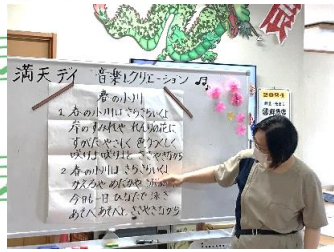 満天デイ 音楽レクリエーション
春の小川
1. 春の小川は さらさらいくよ
岸のすみれや れんげの花に
すがたやさしく 色うつくしく
咲けよ咲けよと ささやきながら
2 春の小川は さらさらいくよ
えびや めだかや
今日も一日 ひなたで 泳ぎ
あそべあそべと ささやきながら